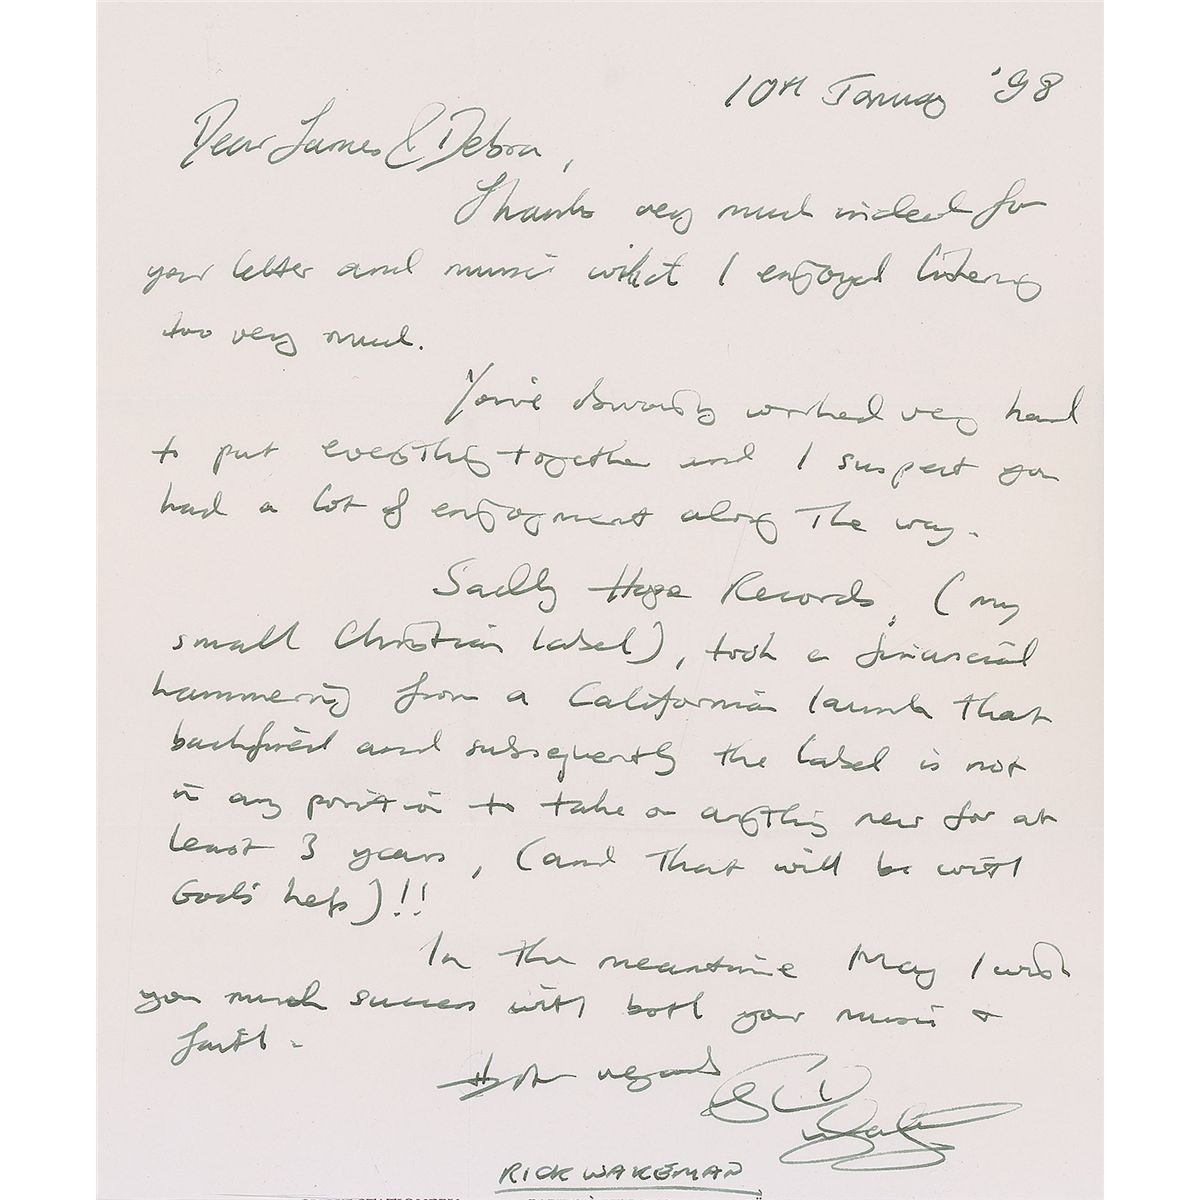 10TH January '98
Dear James & Debra,
Thanks very much indeed for
your letter and music which I enjoyed listening
too very much.
You've obviously worked very hard
to put everything together and I suspect you
had a lot of enjoyment along the way.
Sadly Hope Records, (my
small Christian label), took a financial
hammering from a California launch that
backfired and subsequently the label is not
in any position to take on anything new for at
least 3 years, (and that will be with
God's help)!!
In the meantime May I wish
you much success with both your music &
faith.
regards
RICK WAKEMAN